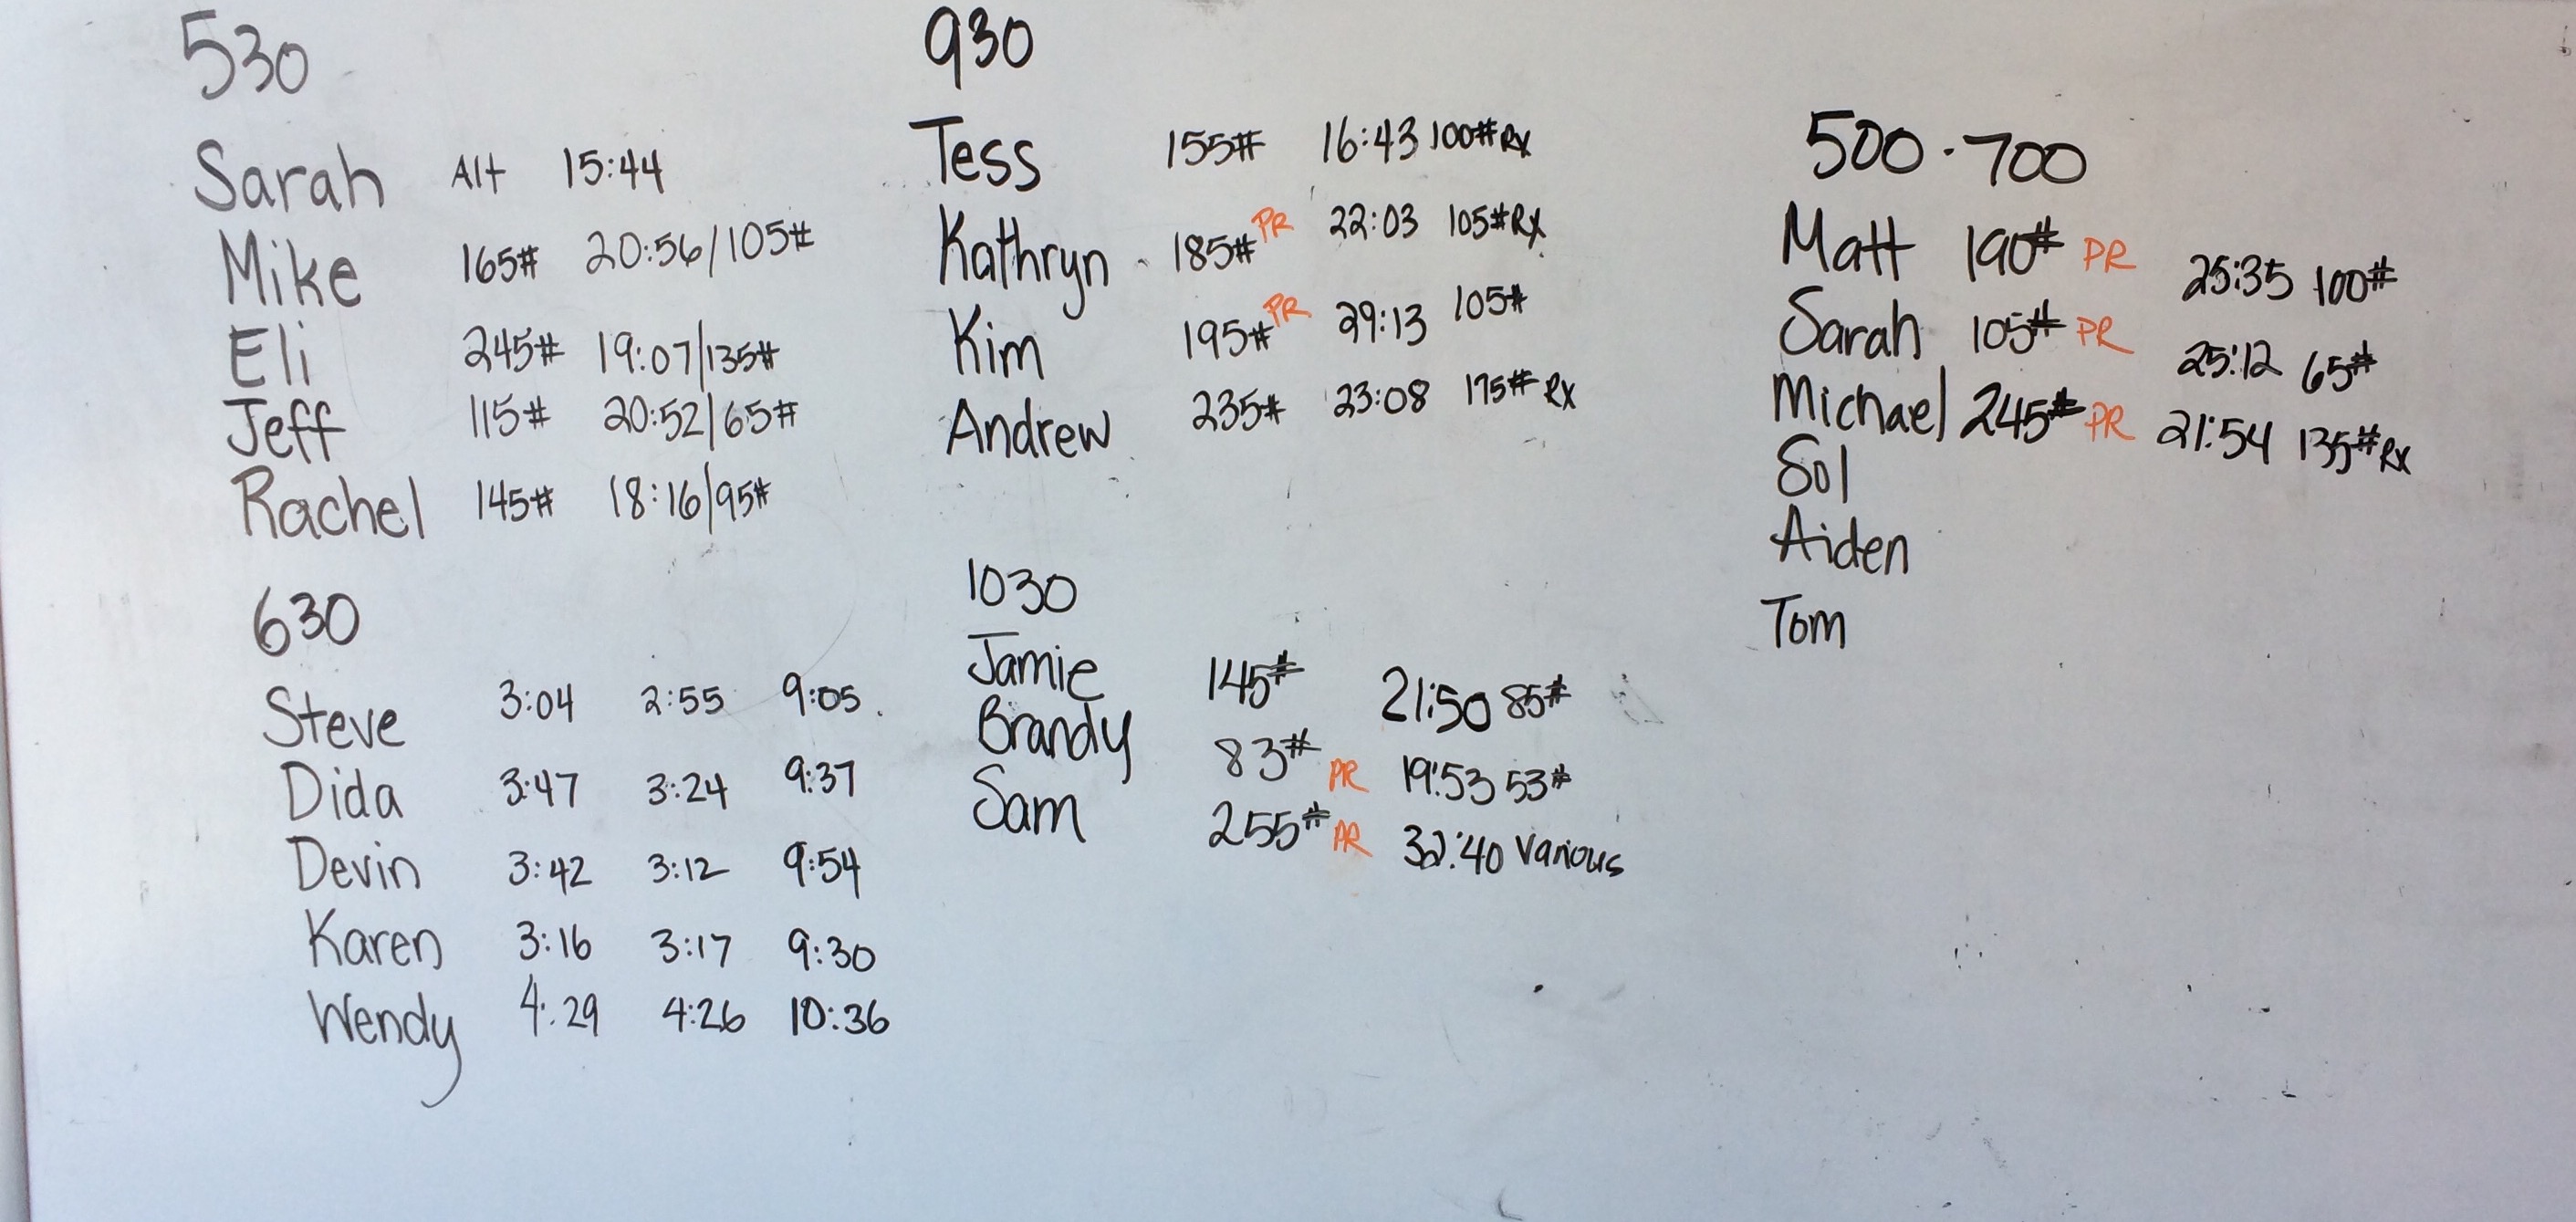 530
Sarah Alt 15:44
Mike 165# 20:56/105#
Eli 245# 19:07/135#
Jeff 115# 20:52/65#
Rachel 145# 18:16/95#
630
Steve 3:04 2:55 9:05
Dida 3:47 3:24 9:37
Devin 3:42 3:12 9:54
Karen 3:16 3:17 9:30
Wendy 4:29 4:26 10:36
930
Tess 155# 16:43 100# Rx
Kathryn 185# PR 22:03 105# Rx
Kim 195# PR 29:13 105#
Andrew 235# 23:08 175# Rx
1030
Jamie 145# 21:50 85#
Brandy 83# PR 19:53 53#
Sam 255# PR 32:40 Various
500-700
Matt 190# PR 25:35 100#
Sarah 105# PR 25:12 65#
Michael 245# PR 21:54 135# Rx
Sol
Aiden
Tom